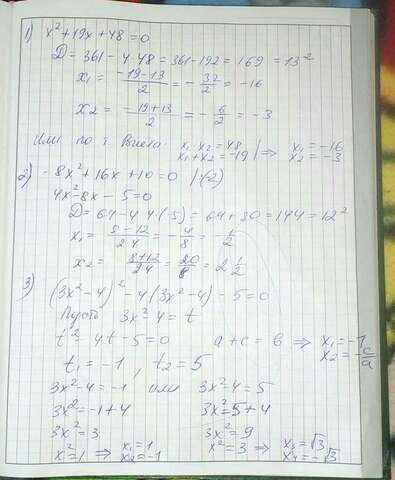 1) x²+19x+48=0
D=361-4·48=361-192=169=13²
x₁=(-19-13)/2=-32/2=-16
x₂=(-19+13)/2=-6/2=-3
Или по т. Виета: x₁·x₂=48 | ⇒ x₁=-16
x₁+x₂=-19 x₂=-3
2) -8x²+16x+10=0 |:(-2)
4x²-8x-5=0
D=64-4·4(-5)=64+80=144=12²
x₁=(8-12)/(2·4)=-4/8=-1/2
x₂=(8+12)/(2·4)=20/8=2 1/2
3) (3x²-4)²-4(3x²-4)-5=0
Пусть 3x²-4=t
t²-4t-5=0 a+c=в ⇒ x₁=-1
x₂=-c/a
t₁=-1, t₂=5
3x²-4=-1 или 3x²-4=5
3x²=-1+4 3x²=5+4
3x²=3 3x²=9
x²=1 ⇒ x₁=1 x²=3 ⇒ x₃=√3
x₂=-1 x₄=-√3